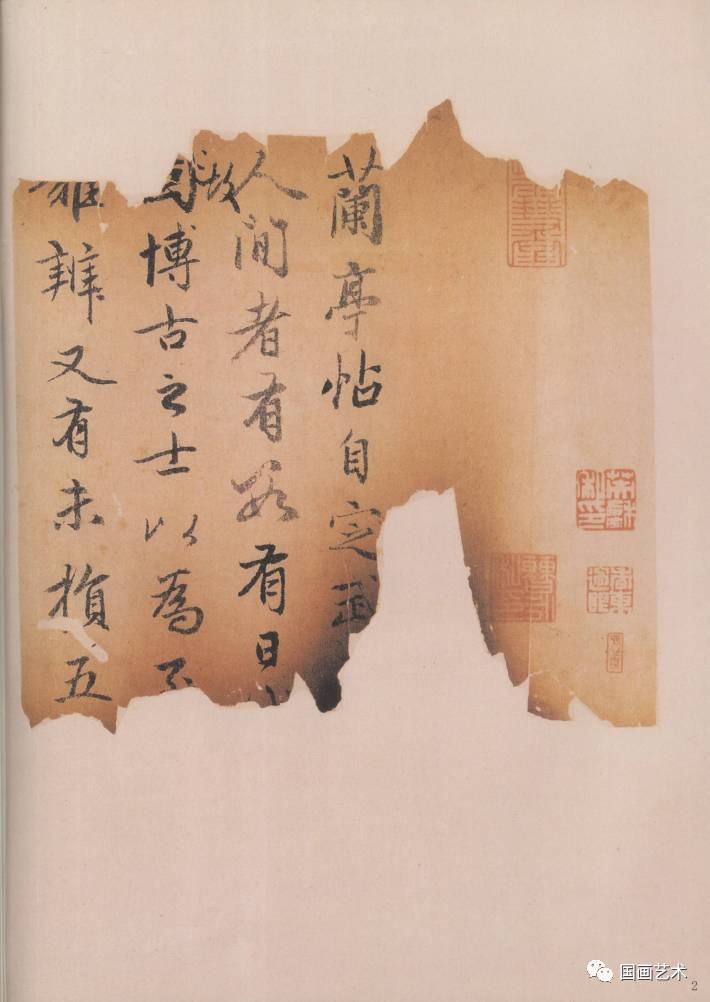 蘭亭帖自定武
人間者有數有日
故
博古之士以為
難辨又有未損五
国画艺术
2